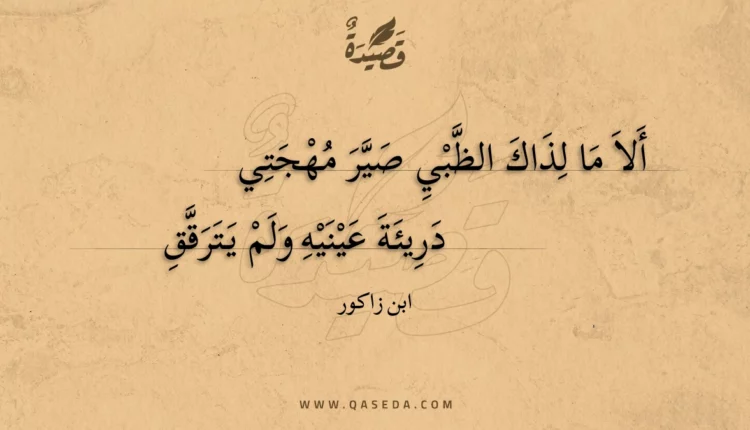 قَصِيْدَةٌ
أَلاَ مَا لِذَاكَ الظَّبْيِ صَيَّرَ مُهْجَتِي
دَرِيئَةَ عَيْنَيْهِ وَلَمْ يَتَرَقَّقِ
ابن زاكور
WWW.QASEDA.COM